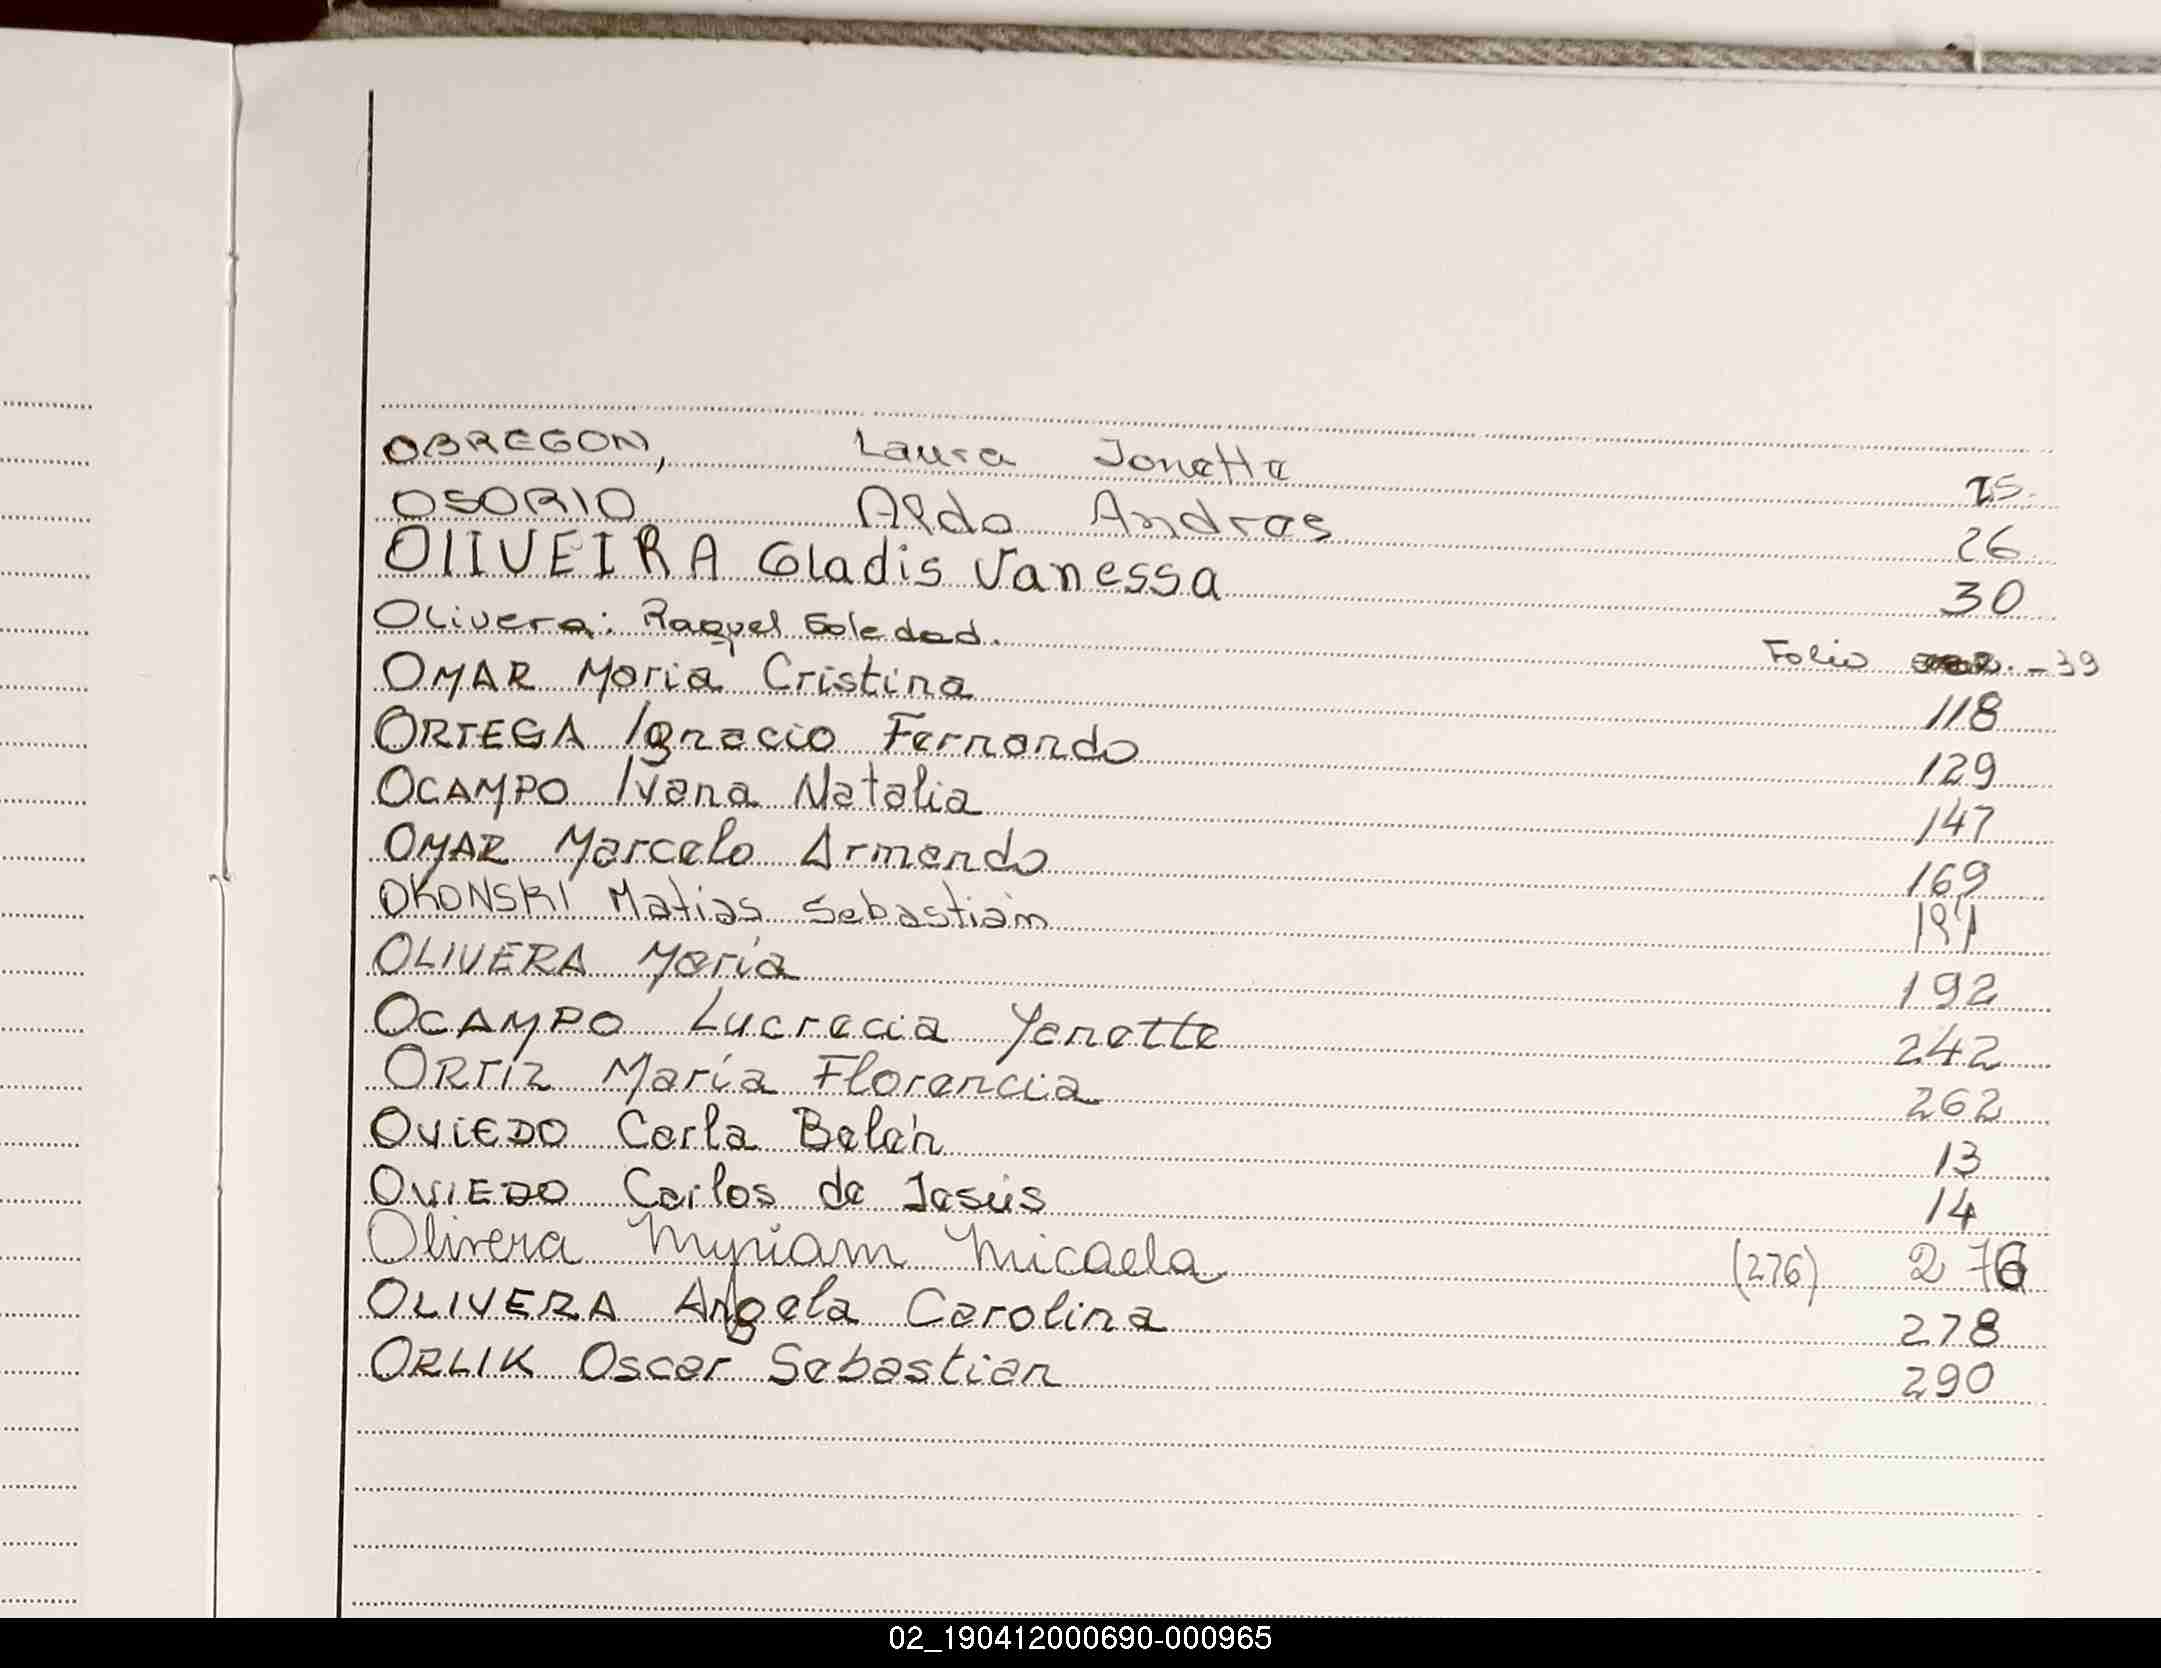 OBREGON, Laura Jonatte 25.
OSORIO Aldo Andres 26
OlIVEIRA Gladis Vanessa 30
Olivera: Raquel Soledad. Folio - 39
OMAR Maria Cristina 118
ORTEGA Ignacio Fernando 129
OCAMPO Ivana Natalia 147
OMAR Marcelo Armando 169
OKONSKI Matias Sebastian 191
OLIVERA María 192
OCAMPO Lucrecia Yanette 242
ORTIZ María Florencia 262
OVIEDO Carla Belén 13
OVIEDO Carlos de Jesús 14
Olivera Myriam Micaela (276) 276
OLIVERA Angela Carolina 278
ORLIK Oscar Sebastian 290
02_190412000690-000965